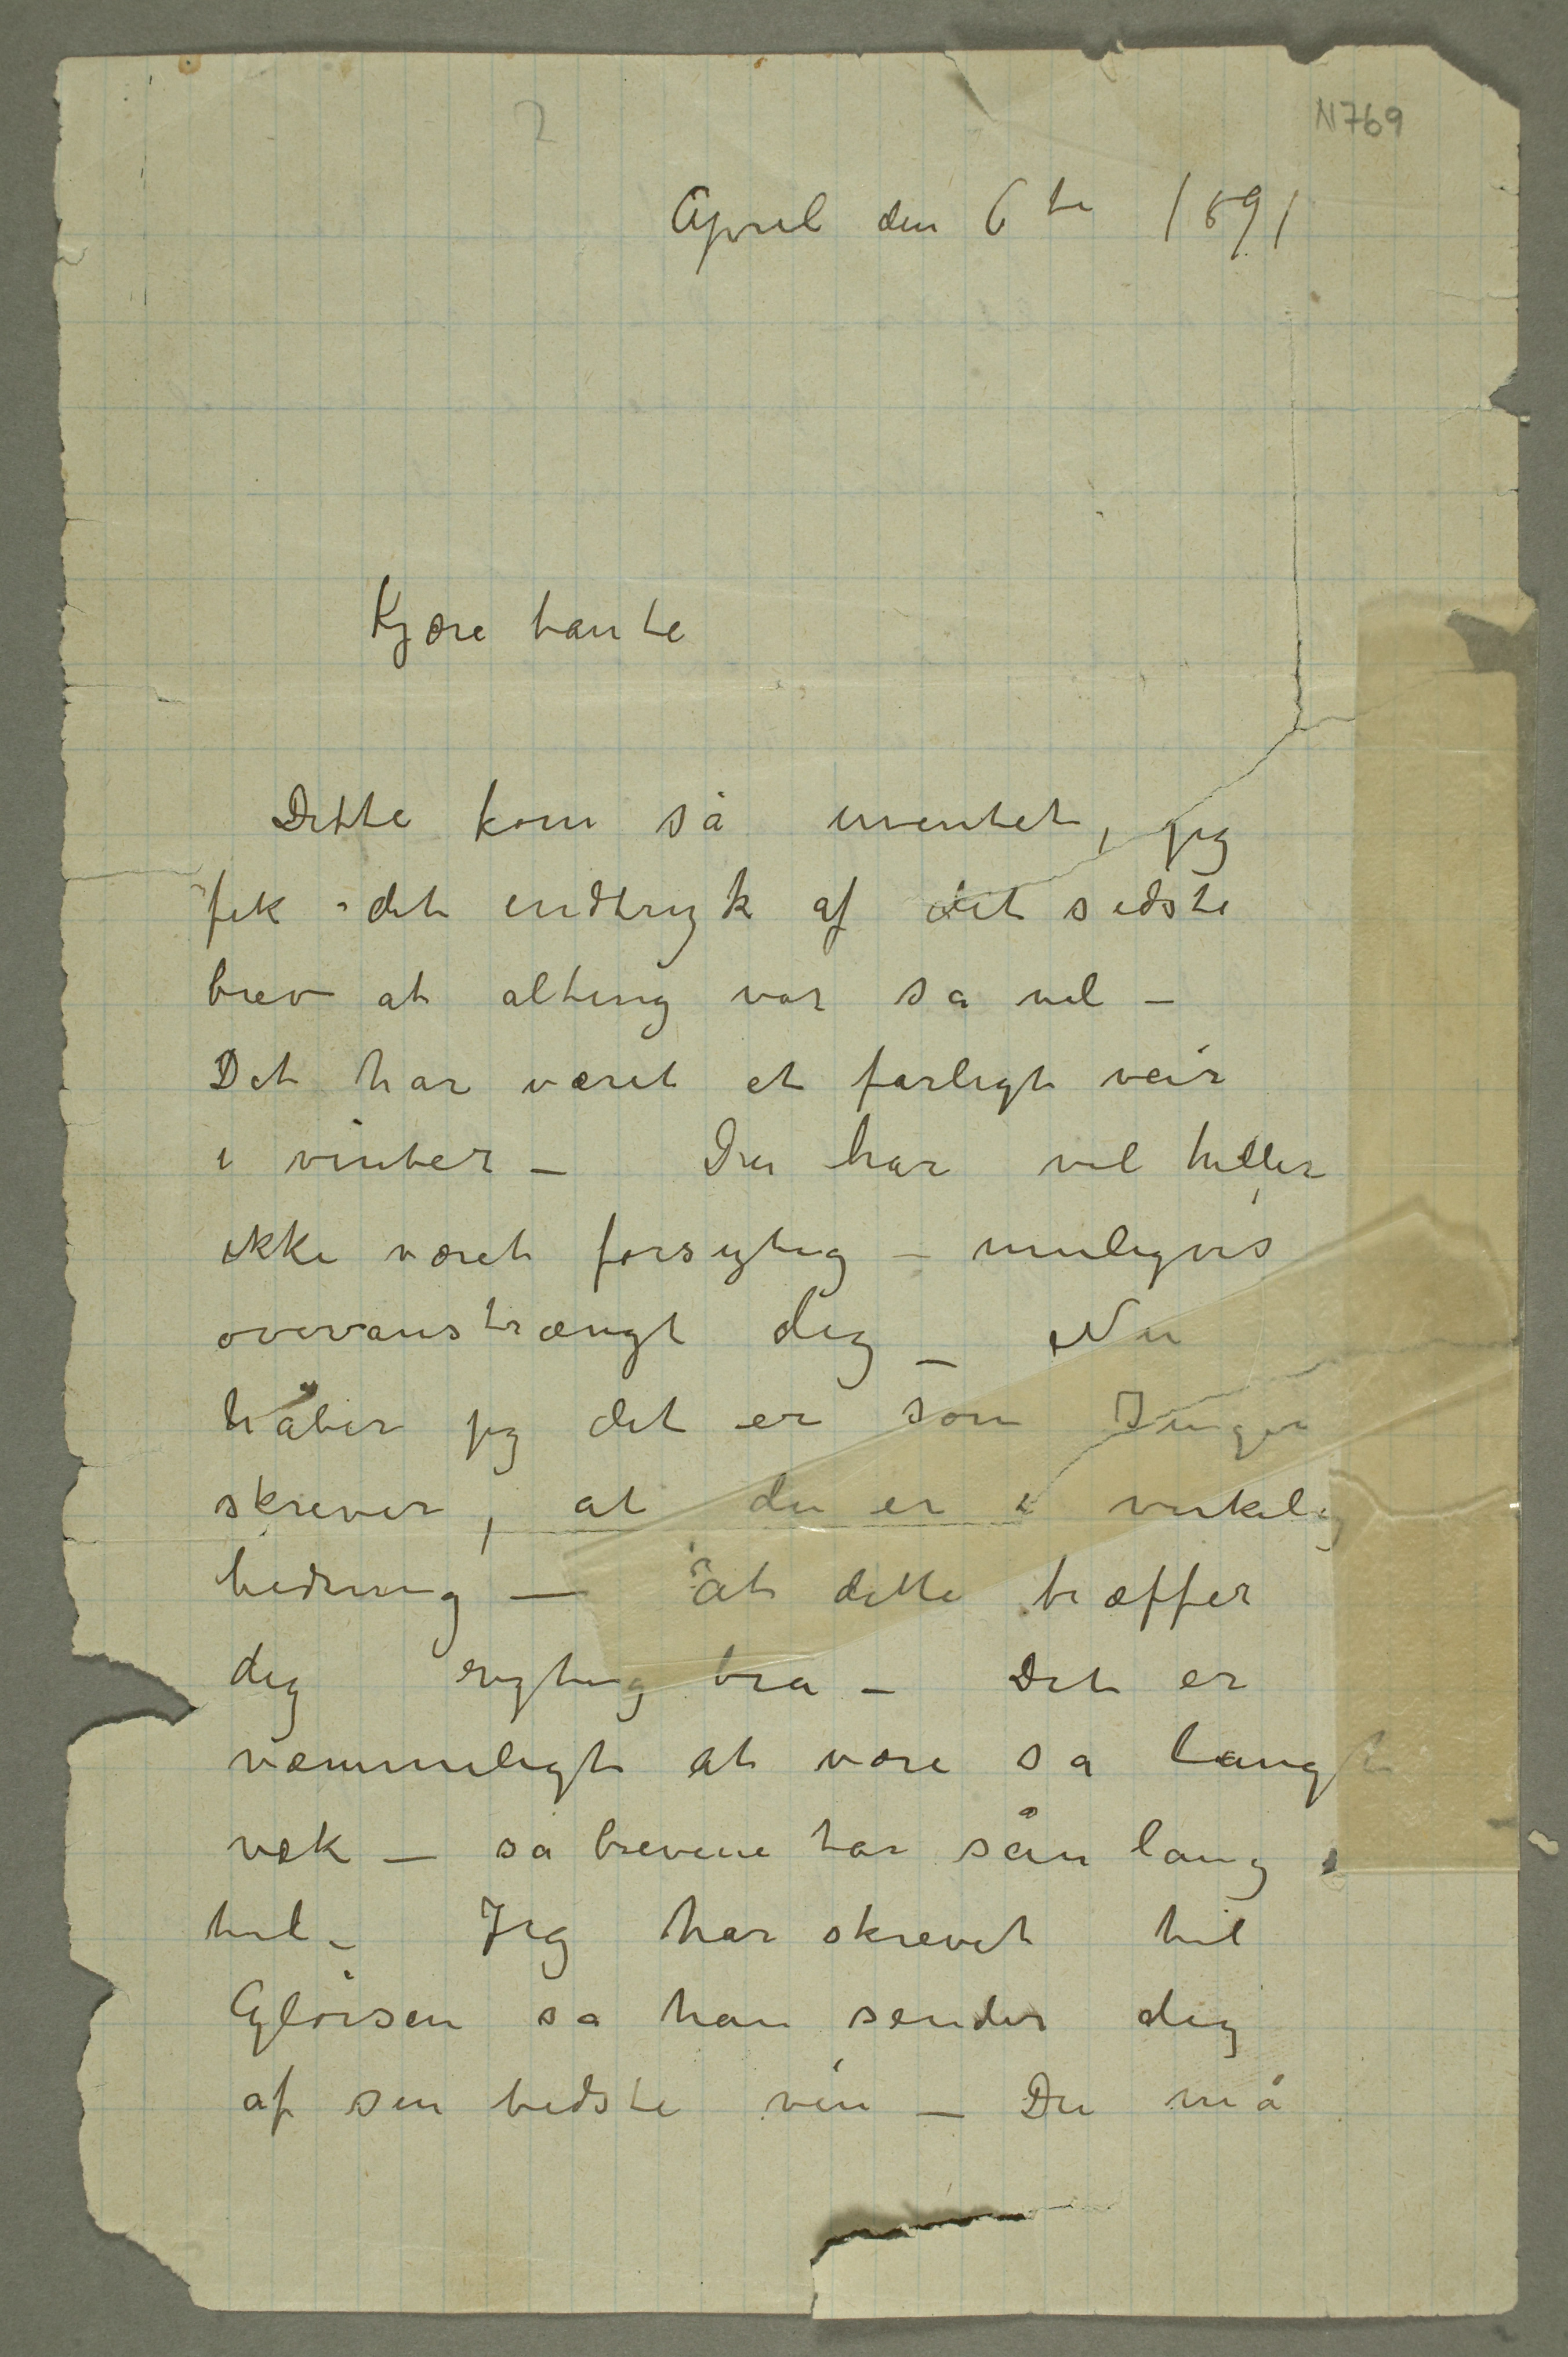 2
N769
April den 6te 1891
Kjære tante
Dette kom så uventet, jeg
fik det indtryk af dit sidste
brev at alting var så vel –
Det har været et farligt veir
i vinter – Du har vel heller
ikke været forsigtig – muligvis
overanstrængt dig – Nu
håber jeg det er som Inger
skriver, at du er i virkelig
bedring – at dette træffer
dig rigtig bra – Det er
væmmeligt at være så langt
væk – så brevene tar sån lang
tid – Jeg har skrevet til
Gløisen så han sender dig
af sin bedste vin – Du må